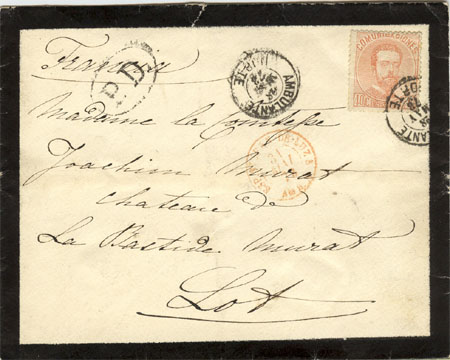 Francia
P.D.
AMBULANTE
NORTE
COMUNICACIONES
AMBULANTE
NORTE
Madame la Comtesse
Joachim Murat
Chateau de
La Bastide Murat
Lot